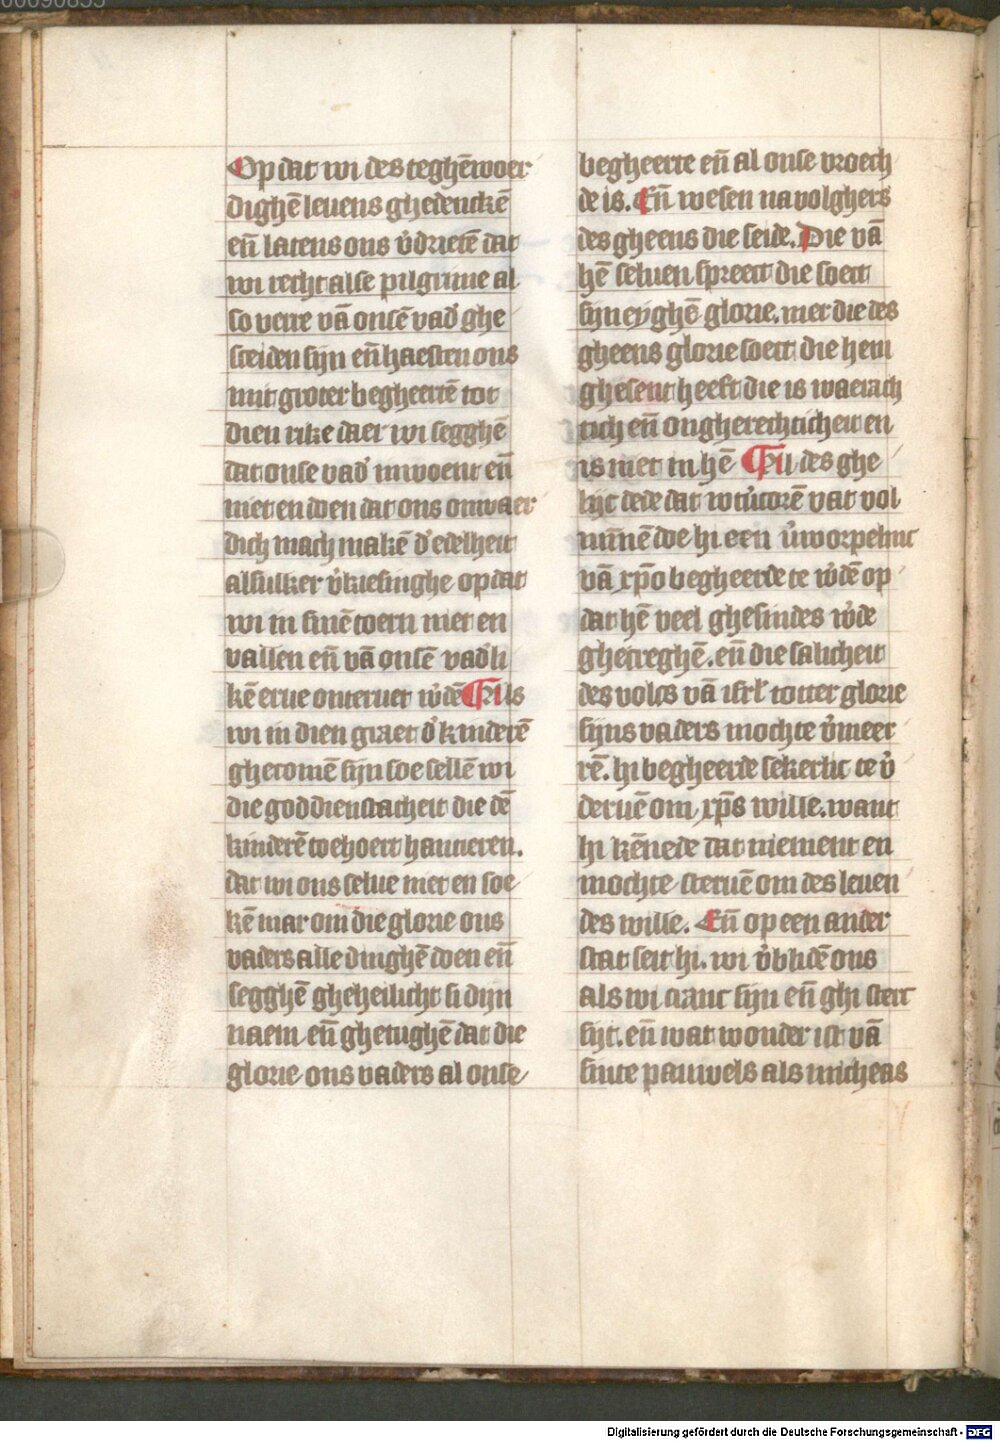 Op dat wi des teghēwoer
dighē leuens ghedenckē
eñ latens ons v̓drietē dat
wi recht alse pilgrime al
so verre vā onsē vad̓ ghe
sceiden sijn eñ haesten ons
mit groter begheertē tot
dien rike daer wi segghē
dat onse vad̓ in woent eñ
niet en doen dat ons onwaer
dich mach makē d̓ edelheit
alsulker v̓kiesinghe op dat
wi in sinē toern niet en
vallen eñ vā onsē vad̓li
kē erue onteruet w̓dē ¶ Als
wi in dien graet d̓ kinderē
ghecomē sijn soe sellē wi
die goddienstacheit die dē
kinderē toehoert hantieren.
dat wi ons selue niet en soe
kē mar om die glorie ons
vaders alle dinghē doen eñ
segghē gheheilicht si dijn
naem eñ ghetughē dat die
glorie ons vaders al onse
begheerte eñ al onse vroech
de is. Eñ wesen na volghers
des gheens die seide. Die vā
hē seluen spreect die soect
sijn eyghē glorie. mer die des
gheens glorie soect die hem
ghesent heeft die is waerach
tich eñ ongherechticheit en
is niet in hē ¶ Al des ghe
lijc dede dat wtūcorē vat vol
minnē doe hi een v̓worpelinc
vā xpō begheerde te w̓dē op
dat hē veel ghesindes w̓de
ghecreghē. eñ die salicheit
des volcs vā isrl̓ totter glorie
sijns vaders mochte v̓meer
rē. hi begheerde sekerlic te v̓
deruē om xp̄s wille. want
hi kēnede dat niement en
mochte steruē om des leuen
des wille. Eñ op een ander
stat seit hi. wi v̓blidē ons
als wi cranc sijn eñ ghi sterc
sijt. eñ wat wonder ist vā
sinte pauwels als micheas
Digitalisierung gefördert durch die Deutsche Forschungsgemeinschaft - DFG